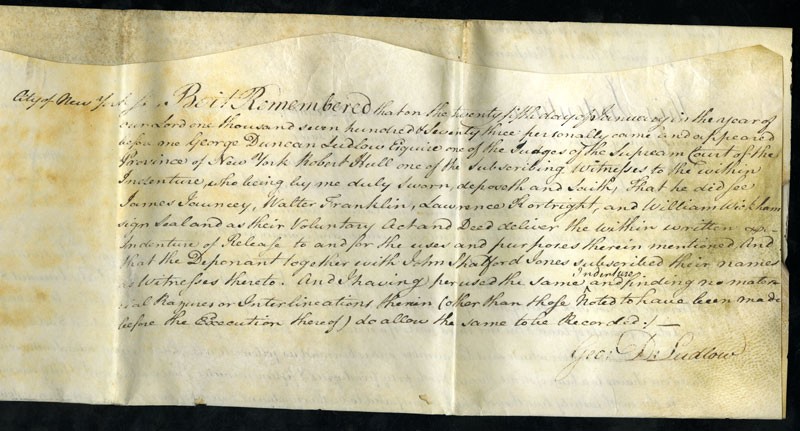 City of New York ss. Be it Remembered that on the twenty fifth day of January in the year of
our Lord one thousand seven hundred & Seventy three personally came and appeared
before me George Duncan Ludlow Esquire one of the Judges of the Supream Court of the
Province of New York Robert Hull one of the Subscribing Witnesses to the within
Indenture, who being by me duly Sworn, deposeth and Saith, That he did see
James Jauncey, Walter Franklin, Lawrence Kortright, and William Wickham
sign Seal and as their Voluntary Act and Deed deliver the within written
Indenture of Release to and for the uses and purposes therein mentioned And
that the Deponant together with John Shatford Jones subscribed their names
as Witnesses thereto. And I having perused the same Indenture and finding no mater-
ial Razures or Interlineations therein (other than those Noted to have been made
before the Execution thereof) do allow the same to be Recorded :/ —
Geo: D: Ludlow